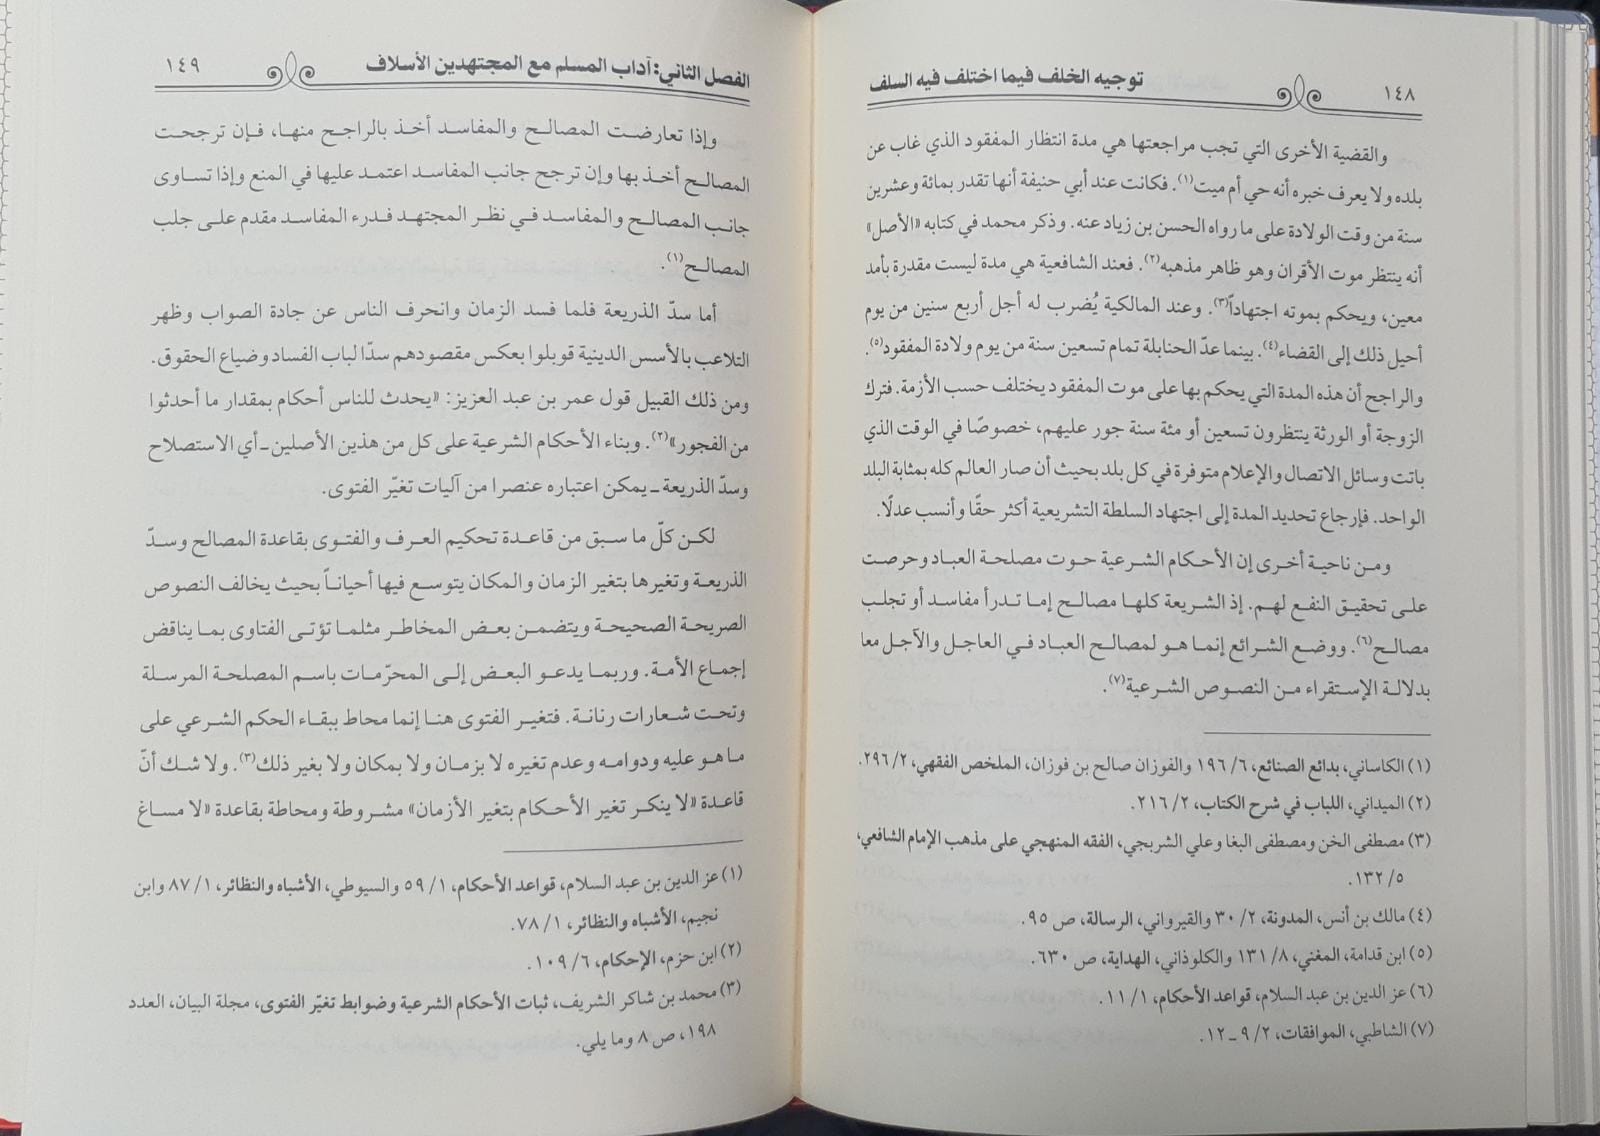 ١٤٨ توجيه الخلف فيما اختلف فيه السلف
والقضية الأخرى التي تجب مراجعتها هي مدة انتظار المفقود الذي غاب عن
بلده ولا يعرف خبره أنه حي أم ميت(١). فكانت عند أبي حنيفة أنها تقدر بمائة وعشرين
سنة من وقت الولادة على ما رواه الحسن بن زياد عنه. وذكر محمد في كتابه «الأصل»
أنه ينتظر موت الأقران وهو ظاهر مذهبه(٢). فعند الشافعية هي مدة ليست مقدرة بأمد
معين، ويحكم بموته اجتهاداً(٣). وعند المالكية يُضرب له أجل أربع سنين من يوم
أحيل ذلك إلى القضاء(٤). بينما عدّ الحنابلة تمام تسعين سنة من يوم ولادة المفقود(٥).
والراجح أن هذه المدة التي يحكم بها على موت المفقود يختلف حسب الأزمة. فترك
الزوجة أو الورثة ينتظرون تسعين أو مئة سنة جور عليهم، خصوصًا في الوقت الذي
باتت وسائل الاتصال والإعلام متوفرة في كل بلد بحيث أن صار العالم كله بمثابة البلد
الواحد. فإرجاع تحديد المدة إلى اجتهاد السلطة التشريعية أكثر حقًا وأنسب عدلًا.
ومن ناحية أخرى إن الأحكام الشرعية حوت مصلحة العباد وحرصت
على تحقيق النفع لهم. إذ الشريعة كلها مصالح إما تدرأ مفاسد أو تجلب
مصالح(٦). ووضع الشرائع إنما هو لمصالح العباد في العاجل والآجل معا
بدلالة الإستقراء من النصوص الشرعية(٧).
(١) الكاساني، بدائع الصنائع، ٦/ ١٩٦ والفوزان صالح بن فوزان، الملخص الفقهي، ٢/ ٢٩٦.
(٢) الميداني، اللباب في شرح الكتاب، ٢/ ٢١٦.
(٣) مصطفى الخن ومصطفى البغا وعلي الشربجي، الفقه المنهجي على مذهب الإمام الشافعي،
٥/ ١٣٢.
(٤) مالك بن أنس، المدونة، ٢/ ٣٠ والقيرواني، الرسالة، ص ٩٥.
(٥) ابن قدامة، المغني، ٨/ ١٣١ والكلوذاني، الهداية، ص ٦٣٠.
(٦) عز الدين بن عبد السلام، قواعد الأحكام، ١/ ١١.
(٧) الشاطبي، الموافقات، ٢/ ٩ ـ ١٢.
الفصل الثاني: آداب المسلم مع المجتهدين الأسلاف ١٤٩
وإذا تعارضت المصالح والمفاسد أخذ بالراجح منها، فإن ترجحت
المصالح أخذ بها وإن ترجح جانب المفاسد اعتمد عليها في المنع وإذا تساوى
جانب المصالح والمفاسد في نظر المجتهد فدرء المفاسد مقدم على جلب
المصالح(١).
أما سدّ الذريعة فلما فسد الزمان وانحرف الناس عن جادة الصواب وظهر
التلاعب بالأسس الدينية قوبلوا بعكس مقصودهم سدّا لباب الفساد وضياع الحقوق.
ومن ذلك القبيل قول عمر بن عبد العزيز: «يحدث للناس أحكام بمقدار ما أحدثوا
من الفجور»(٢). وبناء الأحكام الشرعية على كل من هذين الأصلين ـ أي الاستصلاح
وسدّ الذريعة ـ يمكن اعتباره عنصرا من آليات تغيّر الفتوى.
لكن كلّ ما سبق من قاعدة تحكيم العرف والفتوى بقاعدة المصالح وسدّ
الذريعة وتغيرها بتغير الزمان والمكان يتوسع فيها أحياناً بحيث يخالف النصوص
الصريحة الصحيحة ويتضمن بعض المخاطر مثلما تؤتى الفتاوى بما يناقض
إجماع الأمة. وربما يدعو البعض إلى المحرّمات باسم المصلحة المرسلة
وتحت شعارات رنانة. فتغير الفتوى هنا إنما محاط ببقاء الحكم الشرعي على
ما هو عليه ودوامه وعدم تغيره لا بزمان ولا بمكان ولا بغير ذلك(٣). ولا شك أنّ
قاعدة «لا ينكر تغير الأحكام بتغير الأزمان» مشروطة ومحاطة بقاعدة «لا مساغ
(١) عز الدين بن عبد السلام، قواعد الأحكام، ١/ ٥٩ والسيوطي، الأشباه والنظائر، ١/ ٨٧ وابن
نجيم، الأشباه والنظائر، ١/ ٧٨.
(٢) ابن حزم، الإحكام، ٦/ ١٠٩.
(٣) محمد بن شاكر الشريف، ثبات الأحكام الشرعية وضوابط تغيّر الفتوى، مجلة البيان، العدد
١٩٨، ص ٨ وما يلي.